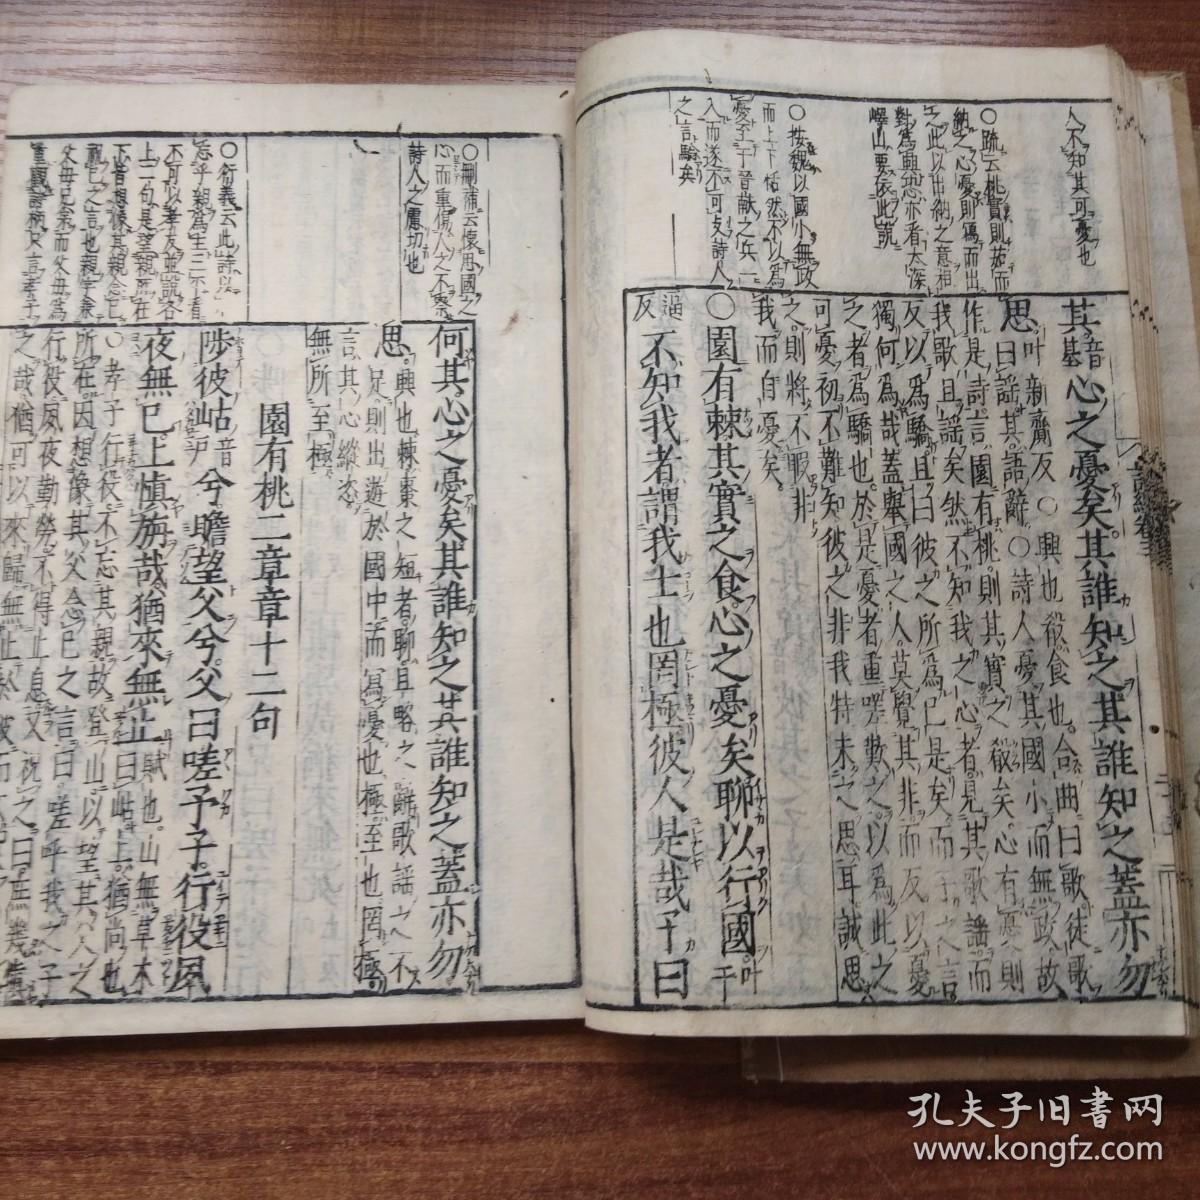 人不知其可憂也
○疏云桃實則茹而
納之心憂則寫而出
之此以出納之意相
對爲面恐亦看太深
嶧山要依此說
○按魏以國小無政
而上下恬然不以爲
憂至于晉獻之兵一
入而遂不可支詩人
之言驗矣
詩經卷三
其音基心之憂矣其誰知之其誰知之蓋亦勿
思叶新齎反○興也殽食也合曲曰歌徒歌
曰謠其語辭○詩人憂其國小而無政故
作是詩言園有桃則其實之殽矣心有憂則
我歌且謠矣然不知我之心者見其歌謠而
反以爲驕且曰彼之所爲已是矣而子之言
獨何爲哉蓋舉國之人莫覺其非而反以憂
之者爲驕也於是憂者重嗟歎之以爲此之
可憂初不難知彼之非我特未之思耳誠思
之則將不暇非
我而自憂矣
○園有棘其實之食心之憂矣聊以行國叶于
逼反不知我者謂我士也罔極彼人是哉子曰
○刪補云懷思國之
心而重傷人之不察
詩人之處功也
○衍義云此詩以
不可以孝友並說各
上一句是望親所在
下皆想像其親念己
祝己之言也
何其心之憂矣其誰知之其誰知之蓋亦勿
思興也棘棗之短者聊且略之辭歌謠之不
足則出遊於國中而寫憂也極至也罔極
言其心縱恣
無所至極
園有桃二章章十二句
陟彼岵音戸兮瞻望父兮父曰嗟予子行役夙
夜無已上慎旃哉猶來無止賦也山無草木
曰岵上猶尚也
○孝子行役不忘其親故登山以望其父之
所在因想像其父念已之言曰嗟乎我之子
行役夙夜勤勞不得止息又祝之曰庶幾慎
之哉猶可以來歸無止於彼而
孔夫子旧书网
www.kongfz.com